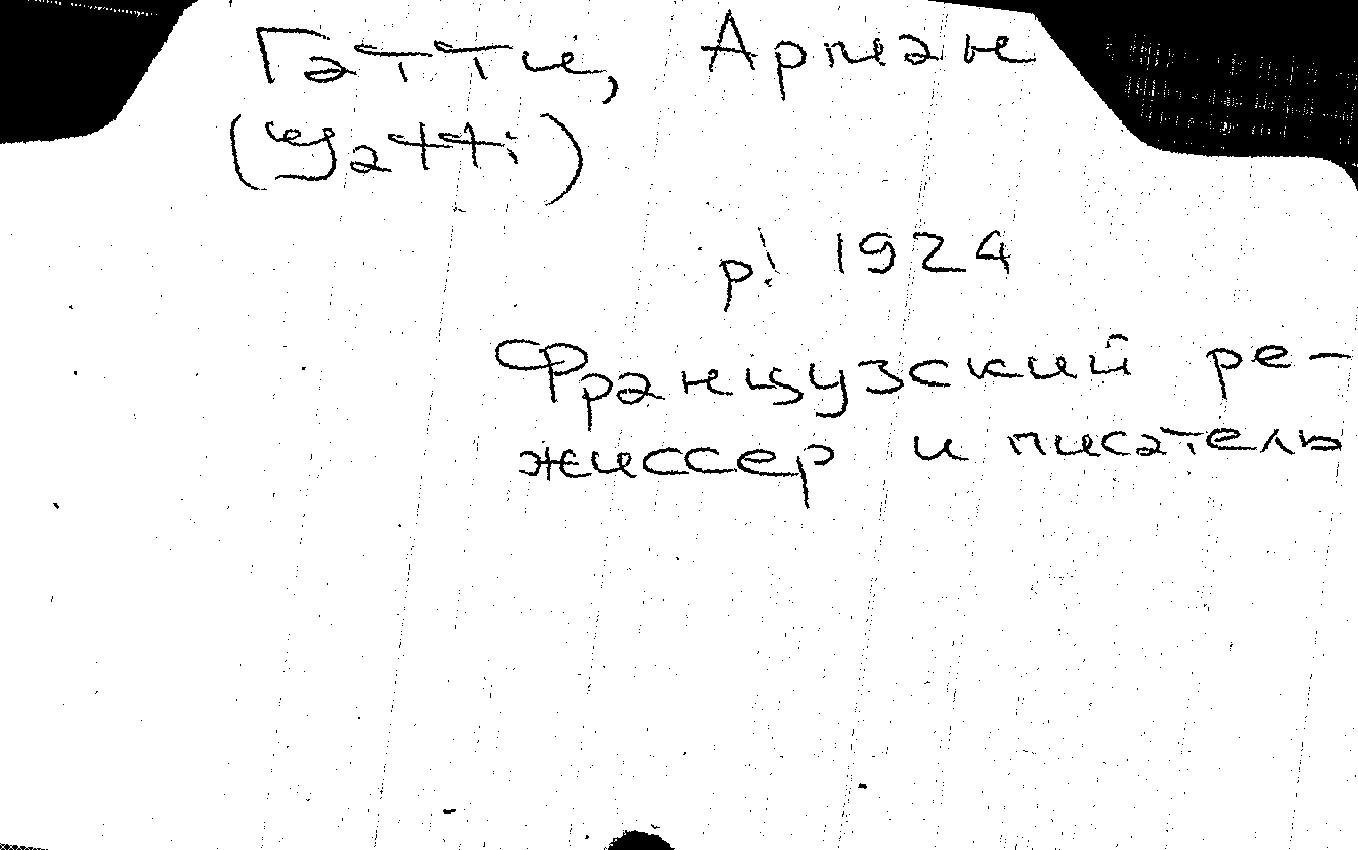 Гатти, Арман
(Gatti)
р. 1924
Французский ре-
жиссер и писатель